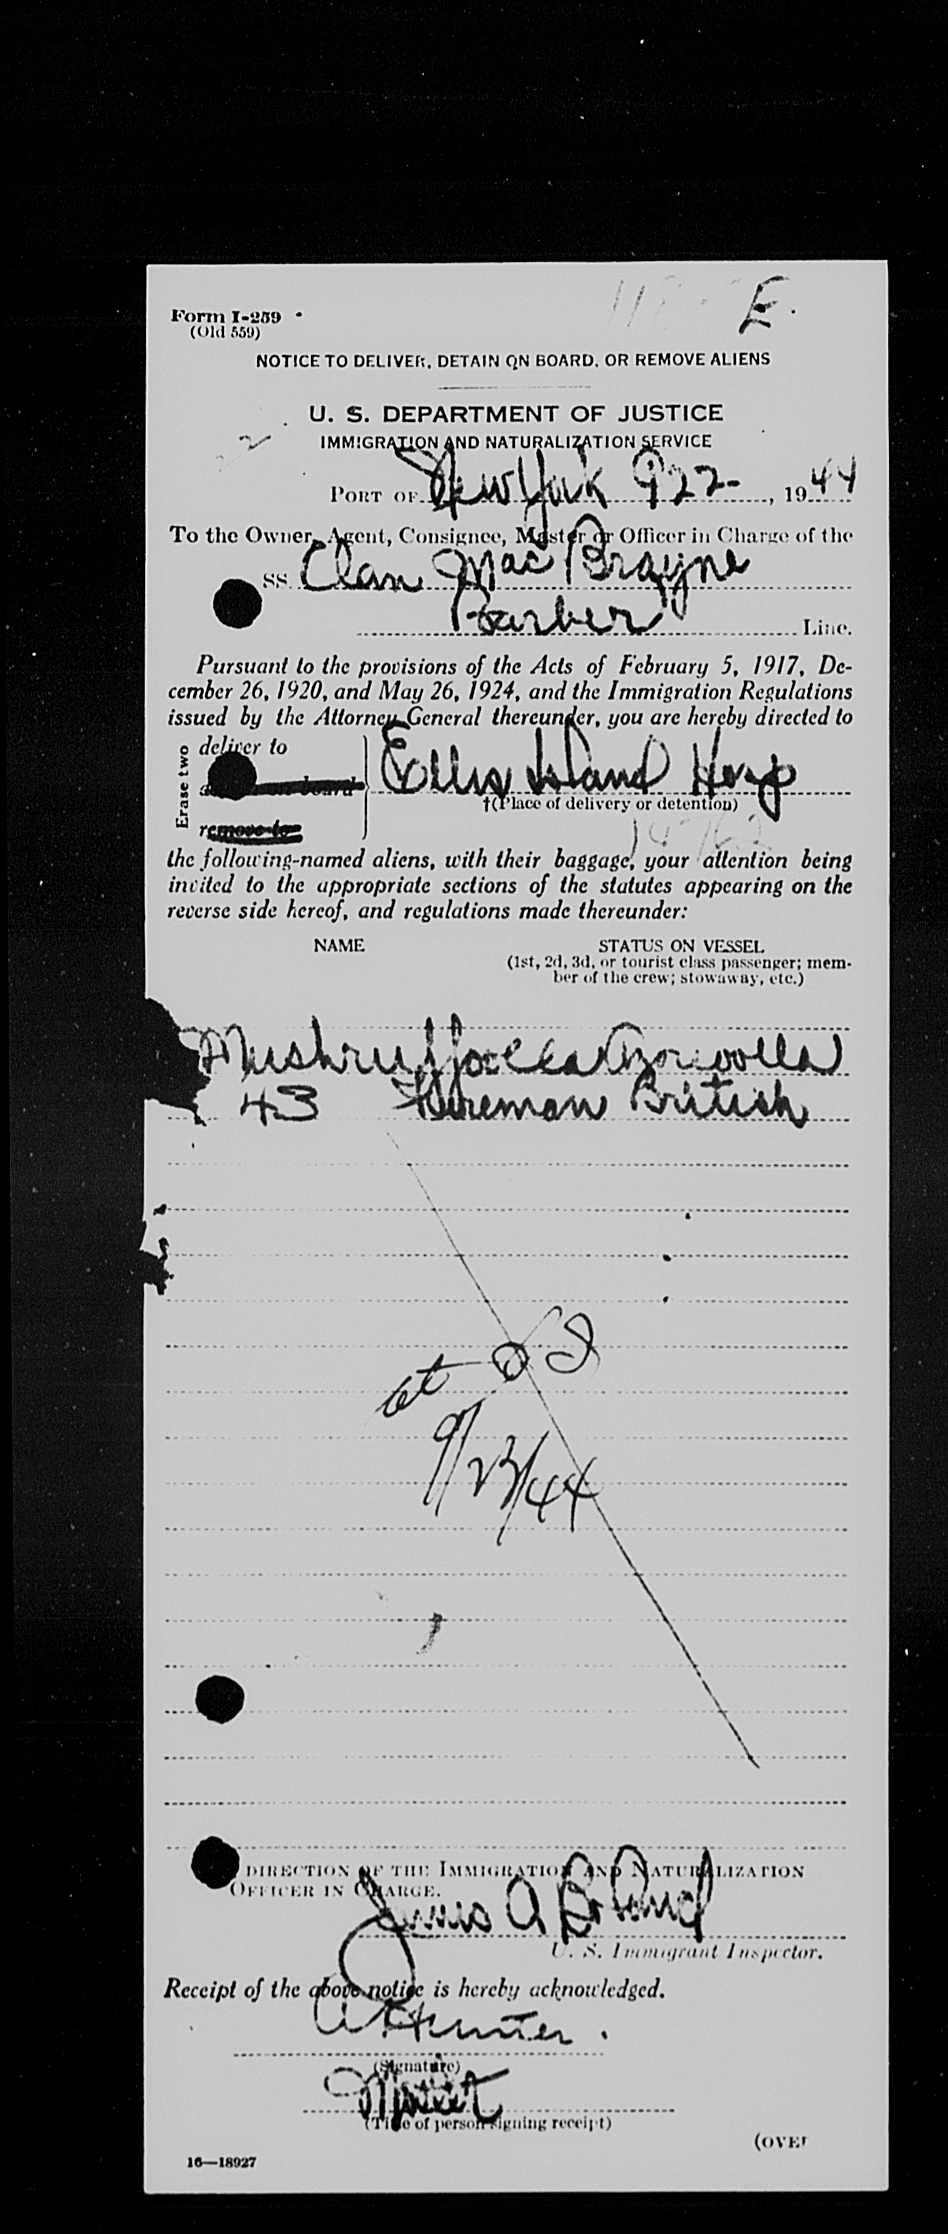 Form I-259
(Old 559)
E.
NOTICE TO DELIVER, DETAIN ON BOARD, OR REMOVE ALIENS
U. S. DEPARTMENT OF JUSTICE
IMMIGRATION AND NATURALIZATION SERVICE
2
PORT OF New York 9 22, 1944
To the Owner, Agent, Consignee, Master or Officer in Charge of the
SS. Clan Mac Brayne
Barber Line.
Pursuant to the provisions of the Acts of February 5, 1917, De-
cember 26, 1920, and May 26, 1924, and the Immigration Regulations
issued by the Attorney General thereunder, you are hereby directed to
Erase two
deliver to
on board Ellis Island Hosp
†(Place of delivery or detention)
remove to
the following-named aliens, with their baggage, your attention being
invited to the appropriate sections of the statutes appearing on the
reverse side hereof, and regulations made thereunder:
NAME STATUS ON VESSEL
(1st, 2d, 3d, or tourist class passenger; mem-
ber of the crew; stowaway, etc.)
43 Fireman British
at
9/23/44
DIRECTION OF THE IMMIGRATION AND NATURALIZATION
OFFICER IN CHARGE.
James A Boland
U. S. Immigrant Inspector.
Receipt of the above notice is hereby acknowledged.
Hunter.
(Signature)
(Title of person signing receipt)
(OVER
16—18927